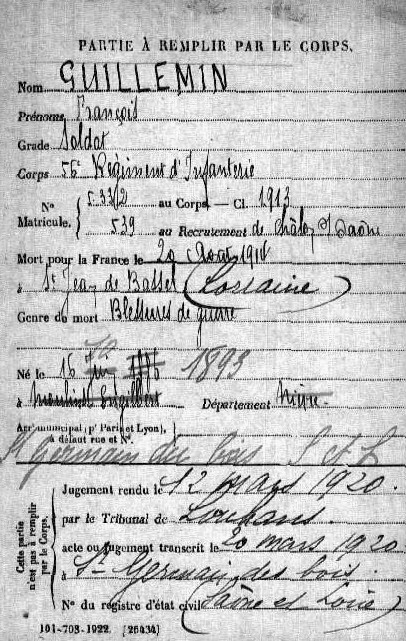 PARTIE À REMPLIR PAR LE CORPS.
Nom GUILLEMIN
Prénoms François
Grade Soldat
Corps 56e Régiment d'Infanterie
N° 5.3312 au Corps. — Cl. 1913
Matricule. 539 au Recrutement de Châlon s/ Saône
Mort pour la France le 20 Août 1914
à St Jean de Bassel (Lorraine)
Genre de mort Blessures de guerre
Né le 16 1893
à Moulins Engilbert Département Nièvre
Arrt municipal (pr Paris et Lyon),
à défaut rue et N°.
St Germain du Bois S et L
Cette partie
n'est pas à remplir
par le Corps.
Jugement rendu le 12 mars 1920.
par le Tribunal de Louhans.
acte ou jugement transcrit le 20 mars 1920
à St Germain des bois
N° du registre d'état civil (Saône et Loire)
101-708-1922. [26434]